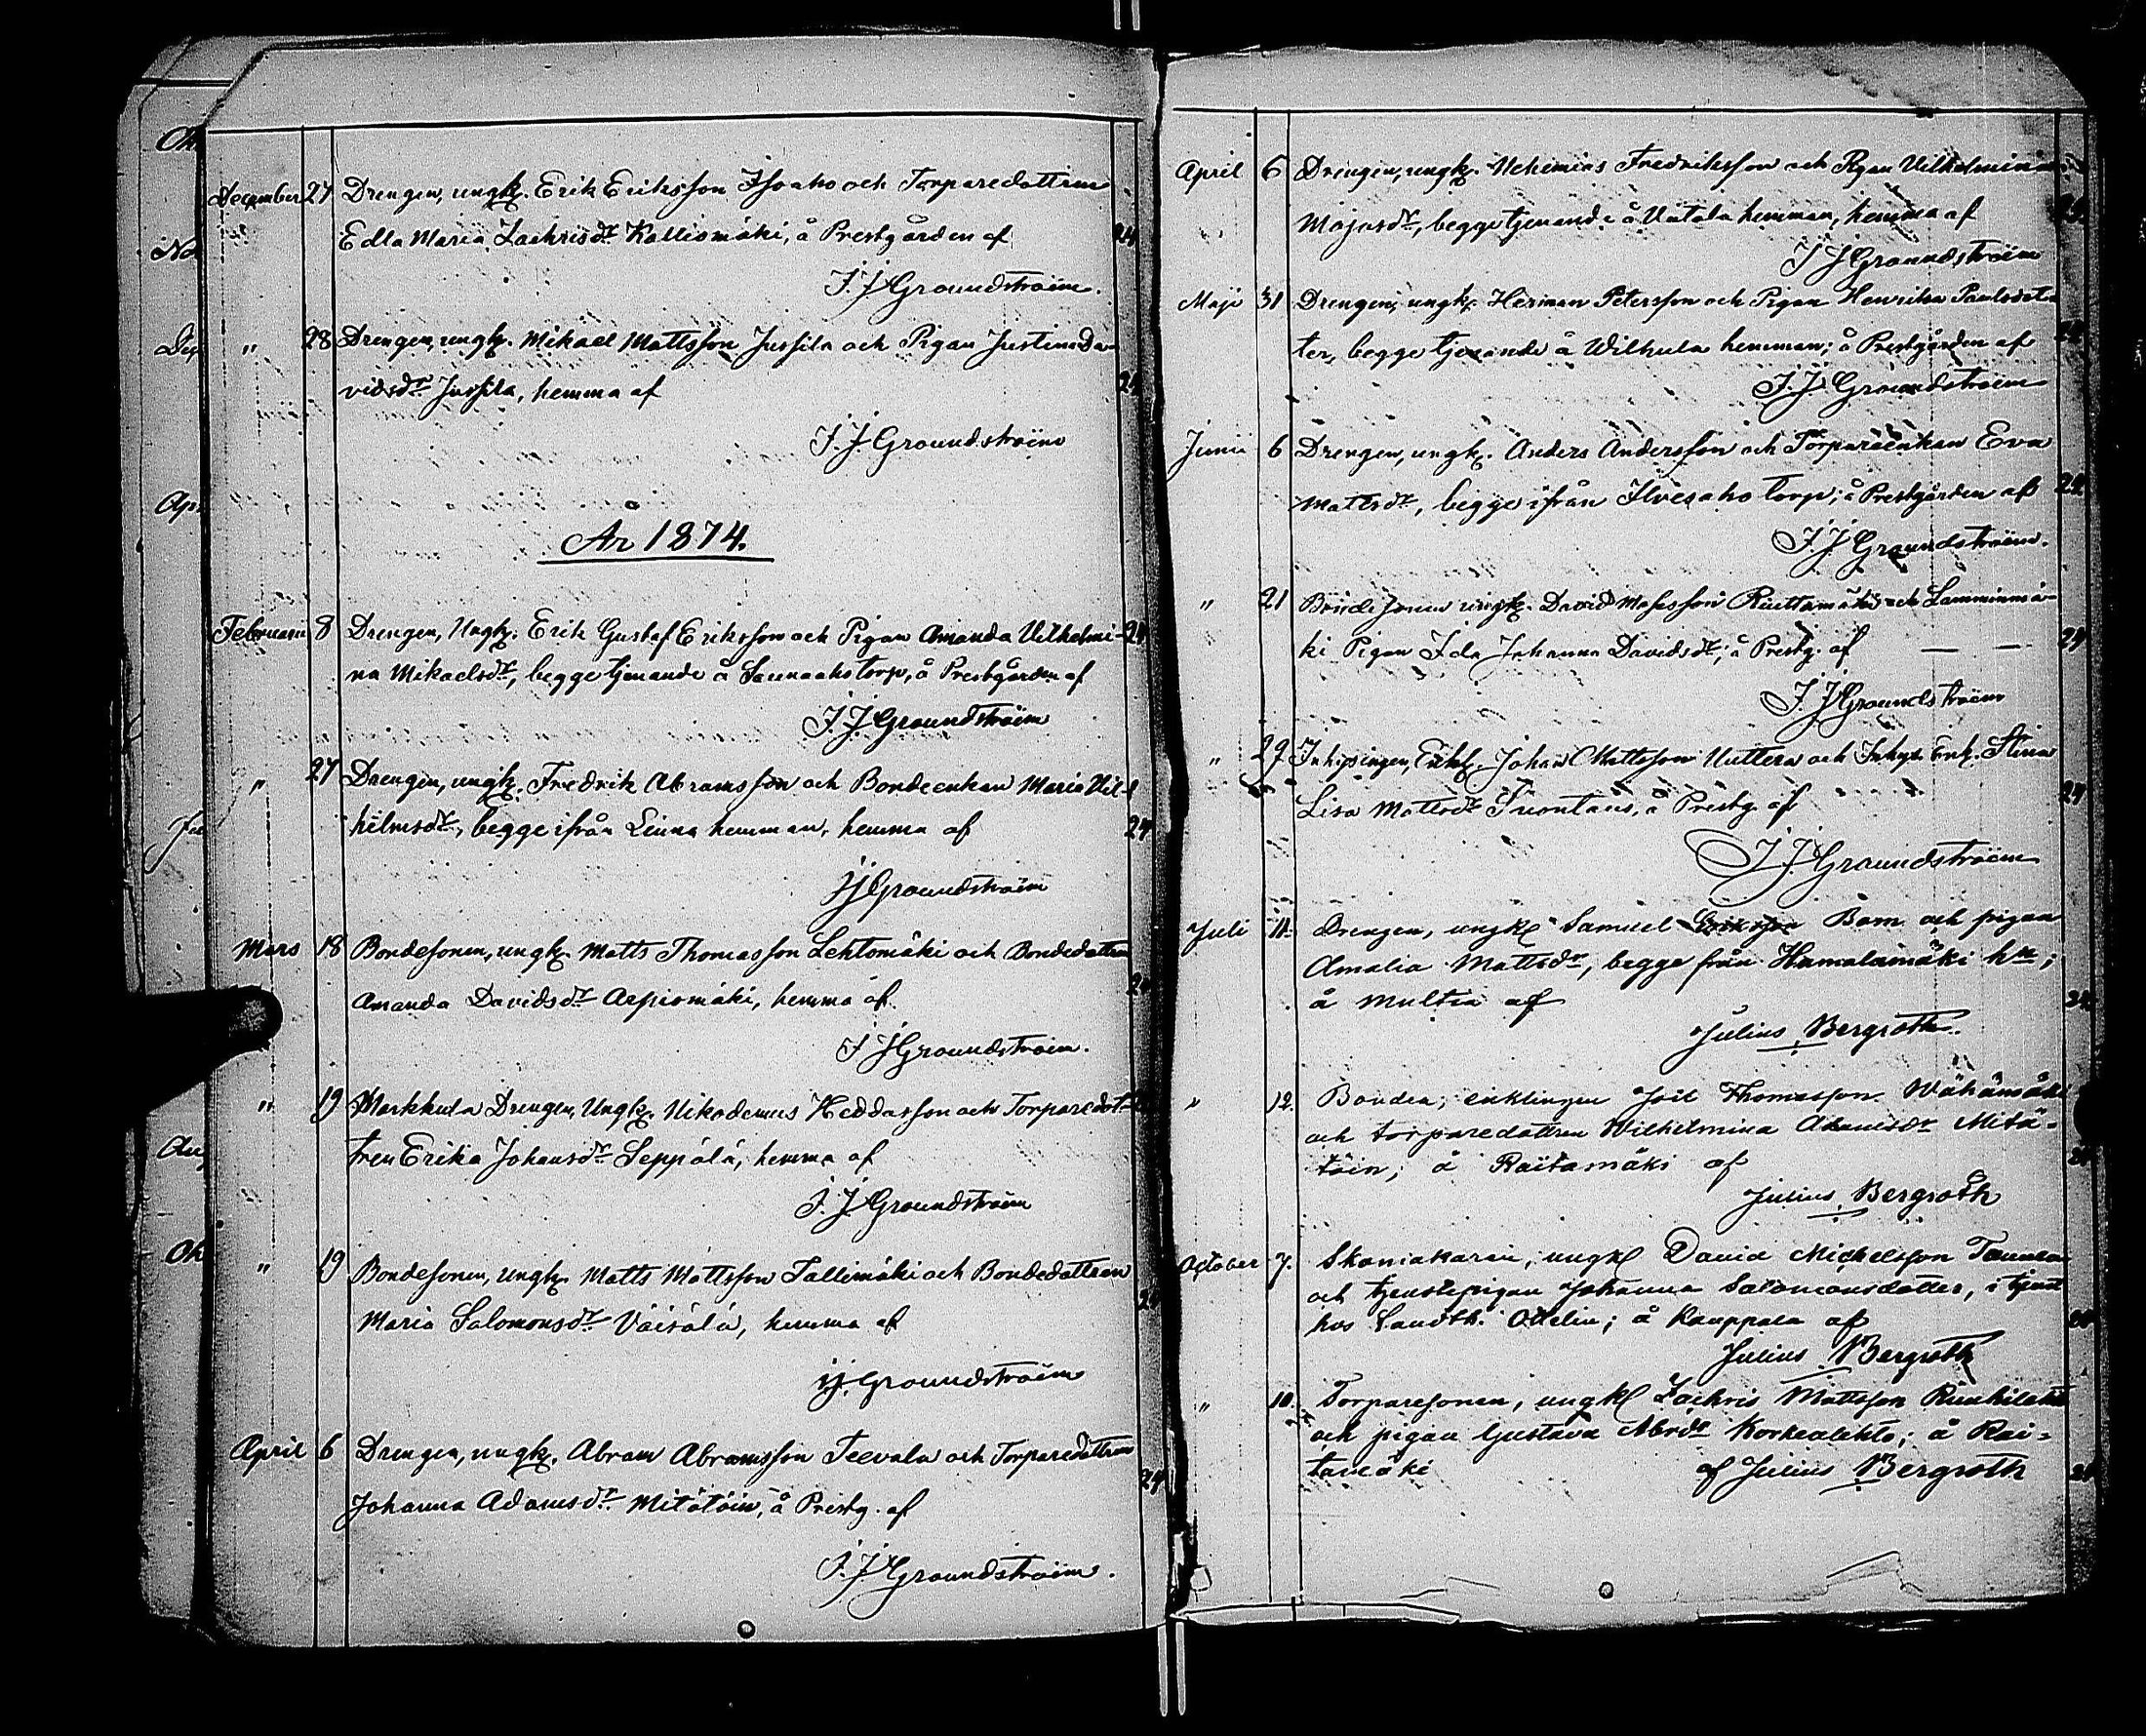 December 27 Drengen, ungk. Erik Eriksson Isoaho och Torparedottren
Edla Maria Zachrisdr Kalliomäki, å Prestgården af 24
J. J. Groundstroëm.
" 28 Drengen, ungk. Mikael Mattsson Jussila och Pigan Justina Da-
vidsdr Jussila, hemma af 24
J. J. Groundstroëm
År 1874.
Februari 8 Drengen, Ungk. Erik Gustaf Eriksson och Pigan Amanda Vilhelmi- 24
na Mikaelsdr, begge tjenande å Saunaaho torp, å Prestgården af
J. J. Groundstroëm
" 27 Drengen, ungk. Fredrik Abramsson och Bondeenkan Maria Vil-
helmsdr, begge ifrån Leuna hemman, hemma af 24
JJ Groundstroëm
Mars 18 Bondesonen, ungk. Matts Thomasson Lehtomäki och Bondedottren
Amanda Davidsdr Aepiomäki, hemma af 24
J J Groundstroëm.
" 19 Markkula Drengen, Ungk. Nikodemus Heddasson och Torparedot-
tren Erika Johansdr Seppälä, hemma af
J. J. Groundstroëm
" 19 Bondesonen, Ungk. Matts Mattsson Tallimäki och Bondedottren
Maria Salomonsdr Väisälä, hemma af 24
JJ. Groundstroëm
April 6 Drengen, ungk. Abram Abramsson Teevala och Torparedottren
Johanna Adamsdr Mitätöin, å Prestg. af 24
J. J. Groundstroëm.
April 6 Drengen, ungk. Nehemias Fredriksson och Pigan Vilhelmina
Majasdr, begge tjenande å Uutala hemman, hemma af 24
J J Groundstroëm
Maji 31 Drengen, ungk. Herman Petersson och Pigan Henrika Paulsdot-
ter, begge tjenande å Wilhula hemman; å Prestgården af 24
J. J. Groundstroëm
Junii 6 Drengen, ungk. Anders Andersson och Torpareenkan Eva
Mattsdr, begge ifrån Ilvesaho torp; å Prestgården af 24
J. J. Groundstroëm.
" 21 Bondesonen ungk. David Mosesson Riuttamäki och Lamminmä-
ki Pigan Ida Johanna Davidsdr; å Prestg. af — — 24
J. J. Groundstroëm
" 29 Inhysingen, Enkl. Johan Mattsson Uuttera och Inhys. Enk. Stina
Lisa Mattsdr Tuontaus, å Prestg. af 24
J. J. Groundstroëm
Juli 11. Drengen, ungkl Samuel Eriksson Bom och pigan
Amalia Mattsdr, begge från Hamalamäki hn;
å Multia af 24
Julius Bergroth.
" 12. Bonden, enklingen Joel Thomasson Wähämäki
och torparedottren Wilhelmina Adamsdr Mitä-
töin; å Raitamäki af 24
Julius Bergroth
October 7. Skomakaren, ungkl David Michelsson
och tjenstepigan Johanna Salomonsdotter, i tjenst
hos Landth. Odelin; å Kauppala af 24
Julius Bergroth
" 10. Torparesonen, ungkl Zachris Mattsson
och pigan Gustava Abrdr Korkealehto; å Rai-
tamäki af Julius Bergroth 24